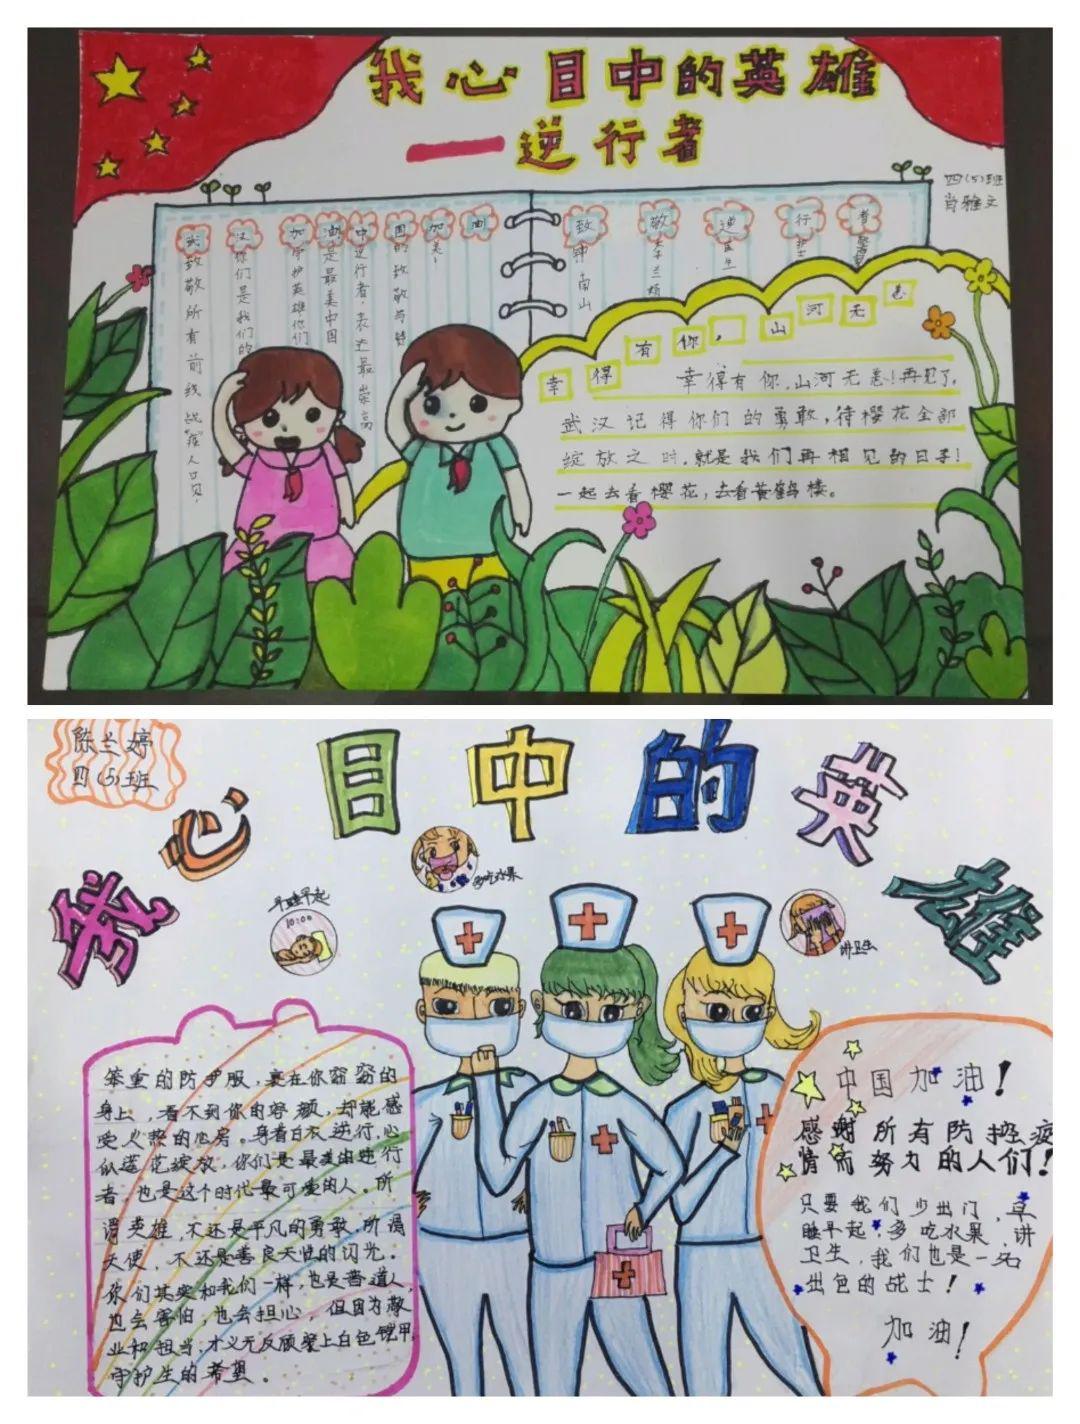 我心目中的英雄
——逆行者
四(5)班
肖雅文
致敬逆行者
致钟南山
敬李兰娟
武致敬所有前线战“疫”人员!
汉你们是我们的
加守护英雄你们
油是最美中国
中逆行者,表达最崇高
国的致敬与赞
加美!
油
幸得有你,山河无恙
幸得有你,山河无恙!再见了,
武汉记得你们的勇敢,待樱花全部
绽放之时,就是我们再相见的日子!
一起去看樱花,去看黄鹤楼。
陈兰婷
四(5)班
我心目中的英雄
多吃水果
早睡早起
10:00
讲卫生
笨重的防护服,裹在你窈窕的
身上,看不到你的容颜,却能感
受火热的心房。身着白衣逆行,心
似莲花绽放,你们是最美的逆行
者,也是这个时代最可爱的人。所
谓英雄,不还是平凡的勇敢,所谓
天使,不还是善良天性的闪光。
你们其实和我们一样,也是普通人,
也会害怕,也会担心,但因为敬
业和担当,才义无反顾裂上白色铠甲,
守护生的希望。
中国加油!
感谢所有防控疫
情而努力的人们!
只要我们少出门,早
睡早起,多吃水果,讲
卫生,我们也是一名
出色的战士!
加油!